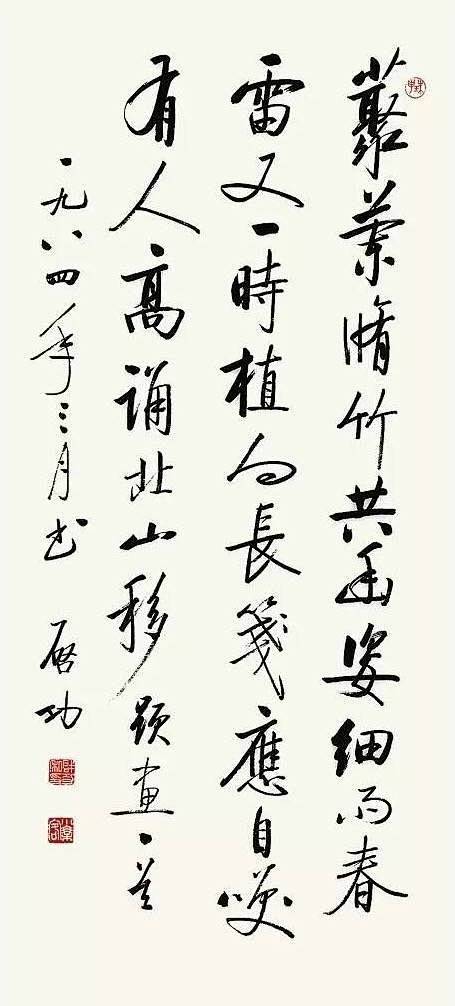 藂蘭脩竹共幽姿細雨春
雷又一時植向長箋應自咲
有人高誦北山移題畫一首
一九八四年三月書啓功